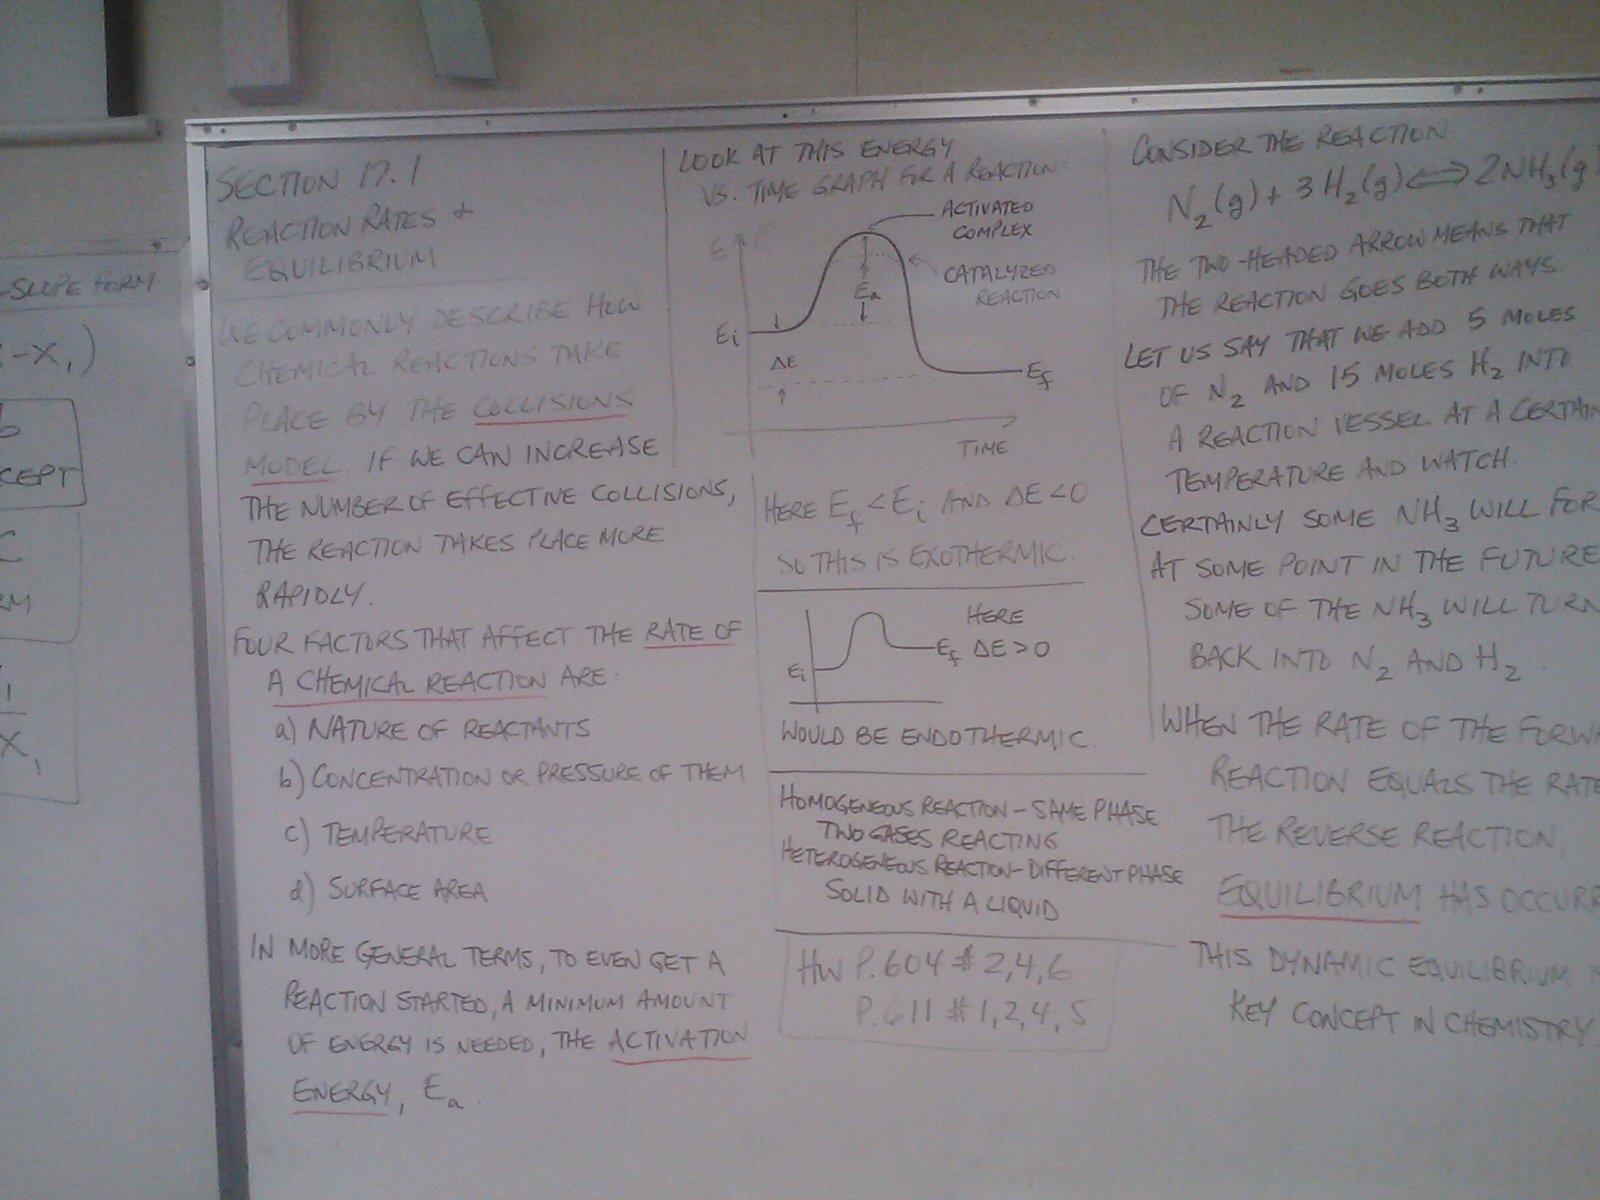 SECTION 17.1
REACTION RATES &
EQUILIBRIUM
WE COMMONLY DESCRIBE HOW
CHEMICAL REACTIONS TAKE
PLACE BY THE COLLISIONS
MODEL. IF WE CAN INCREASE
THE NUMBER OF EFFECTIVE COLLISIONS,
THE REACTION TAKES PLACE MORE
RAPIDLY.
FOUR FACTORS THAT AFFECT THE RATE OF
A CHEMICAL REACTION ARE:
a) NATURE OF REACTANTS
b) CONCENTRATION OR PRESSURE OF THEM
c) TEMPERATURE
d) SURFACE AREA
IN MORE GENERAL TERMS, TO EVEN GET A
REACTION STARTED, A MINIMUM AMOUNT
OF ENERGY IS NEEDED, THE ACTIVATION
ENERGY, Ea.
LOOK AT THIS ENERGY
VS. TIME GRAPH FOR A REACTION:
E
ACTIVATED
COMPLEX
CATALYZED
REACTION
Ea
Ei
ΔE
Ef
TIME
HERE Ef < Ei AND ΔE < 0
SO THIS IS EXOTHERMIC.
HERE
Ef ΔE > 0
Ei
WOULD BE ENDOTHERMIC.
HOMOGENEOUS REACTION - SAME PHASE
TWO GASES REACTING
HETEROGENEOUS REACTION - DIFFERENT PHASE
SOLID WITH A LIQUID
HW P.604 # 2,4,6
P.611 # 1,2,4,5
CONSIDER THE REACTION
N2(g) + 3H2(g) ⇔ 2NH3(g)
THE TWO-HEADED ARROW MEANS THAT
THE REACTION GOES BOTH WAYS.
LET US SAY THAT WE ADD 5 MOLES
OF N2 AND 15 MOLES H2 INTO
A REACTION VESSEL AT A CERTAIN
TEMPERATURE AND WATCH.
CERTAINLY SOME NH3 WILL FOR
AT SOME POINT IN THE FUTURE
SOME OF THE NH3 WILL TURN
BACK INTO N2 AND H2.
WHEN THE RATE OF THE FORWA
REACTION EQUALS THE RATE
THE REVERSE REACTION,
EQUILIBRIUM HAS OCCURR
THIS DYNAMIC EQUILIBRIUM
KEY CONCEPT IN CHEMISTRY
-SLOPE FORM
-X1)
b
CEPT
C
RM
1
X1